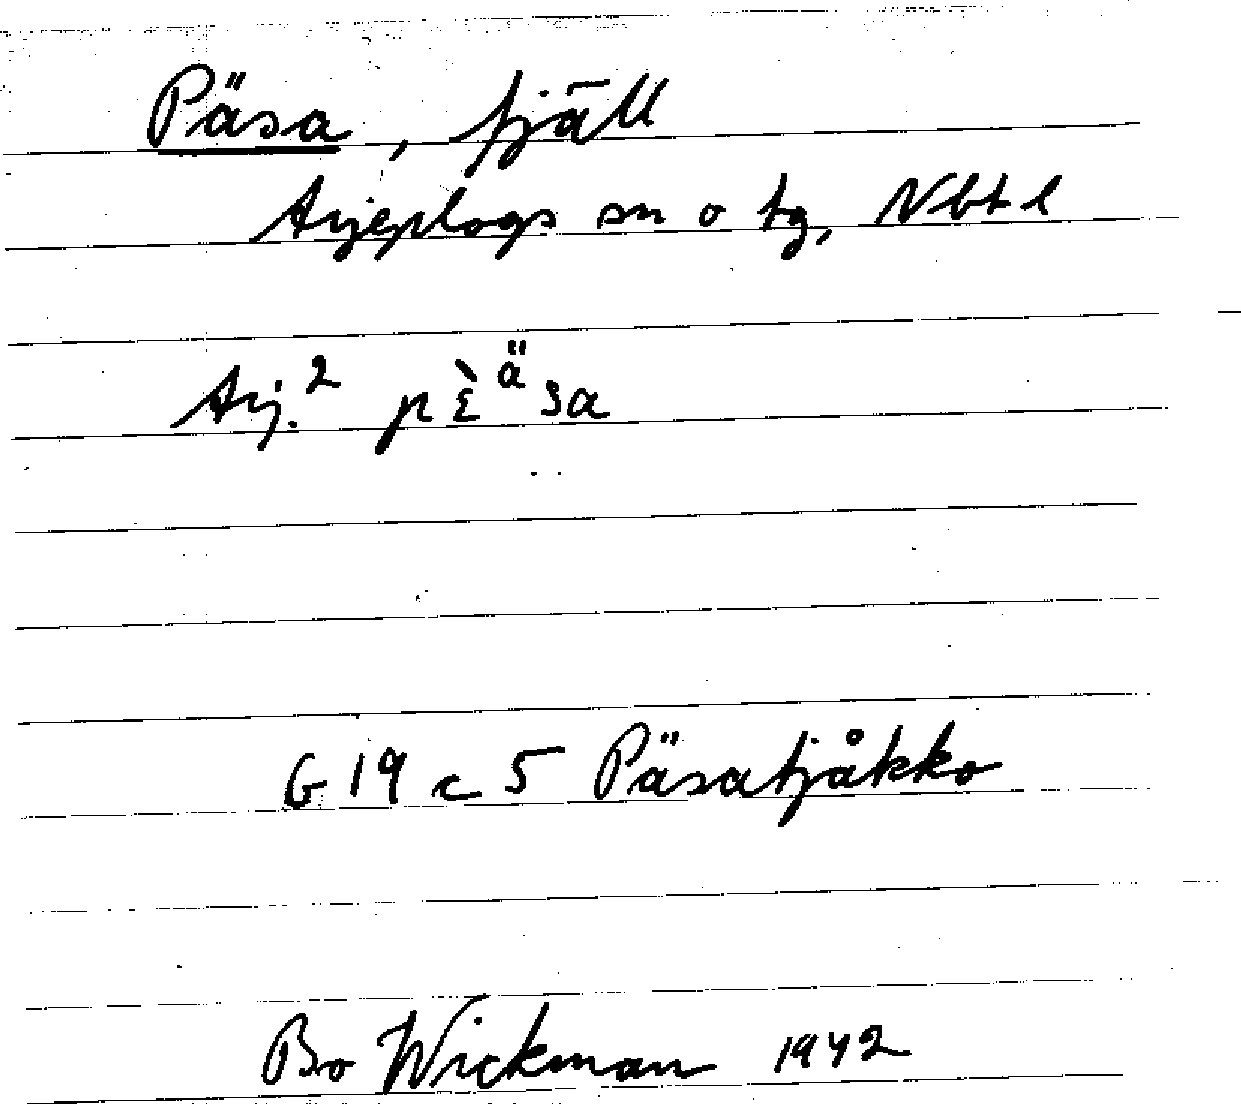 Päsa, fjäll
Arjeplogs sn o tg, Nbt l
Arj.² pὲᵃ̈sa
G 19 c 5 Päsatjåkko
Bo Wickman 1942